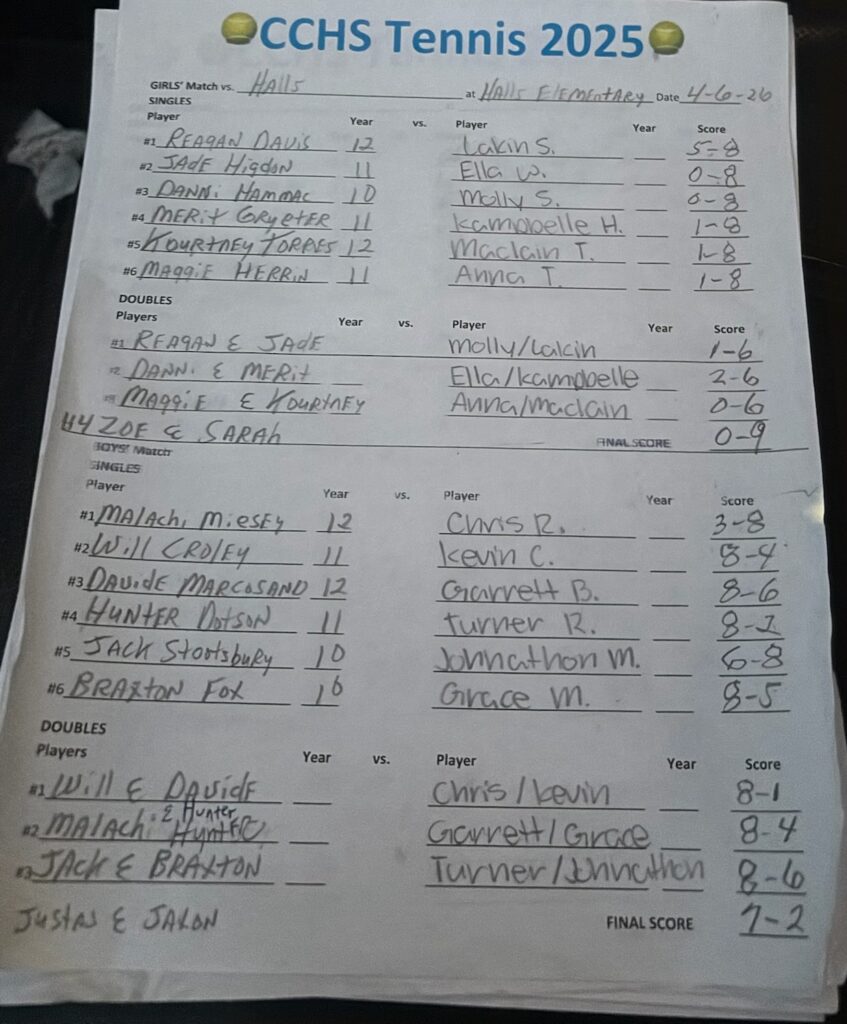 CCHS Tennis 2025
GIRLS' Match vs. Halls at Halls Elementary Date 4-6-26
SINGLES
Player Year vs. Player Year Score
#1 Reagan Davis 12 Lakin S. 5-8
#2 Jade Higdon 11 Ella W. 0-8
#3 Danni Hammac 10 Molly S. 0-8
#4 Merit Gryeter 11 Kampbelle H. 1-8
#5 Kourtney Torres 12 Maclain T. 1-8
#6 Maggie Herrin 11 Anna T. 1-8
DOUBLES
Players Year vs. Player Year Score
#1 Reagan & Jade Molly/Lakin 1-6
#2 Danni & Merit Ella/Kampbelle 2-6
#3 Maggie & Kourtney Anna/Maclain 0-6
#4 Zoe & Sarah FINAL SCORE 0-9
BOYS' Match
SINGLES
Player Year vs. Player Year Score
#1 Malachi Miesey 12 Chris R. 3-8
#2 Will Croley 11 Kevin C. 8-4
#3 Davide Marcosano 12 Garrett B. 8-6
#4 Hunter Dotson 11 Turner R. 8-2
#5 Jack Stootsbury 10 Johnathon M. 6-8
#6 Braxton Fox 10 Grace M. 8-5
DOUBLES
Players Year vs. Player Year Score
#1 Will & Davide Chris/Kevin 8-1
& Hunter
#2 Malachi Hunter Garrett/Grace 8-4
#3 Jack & Braxton Turner/Johnathon 8-6
Justas & Jaxon FINAL SCORE 7-2